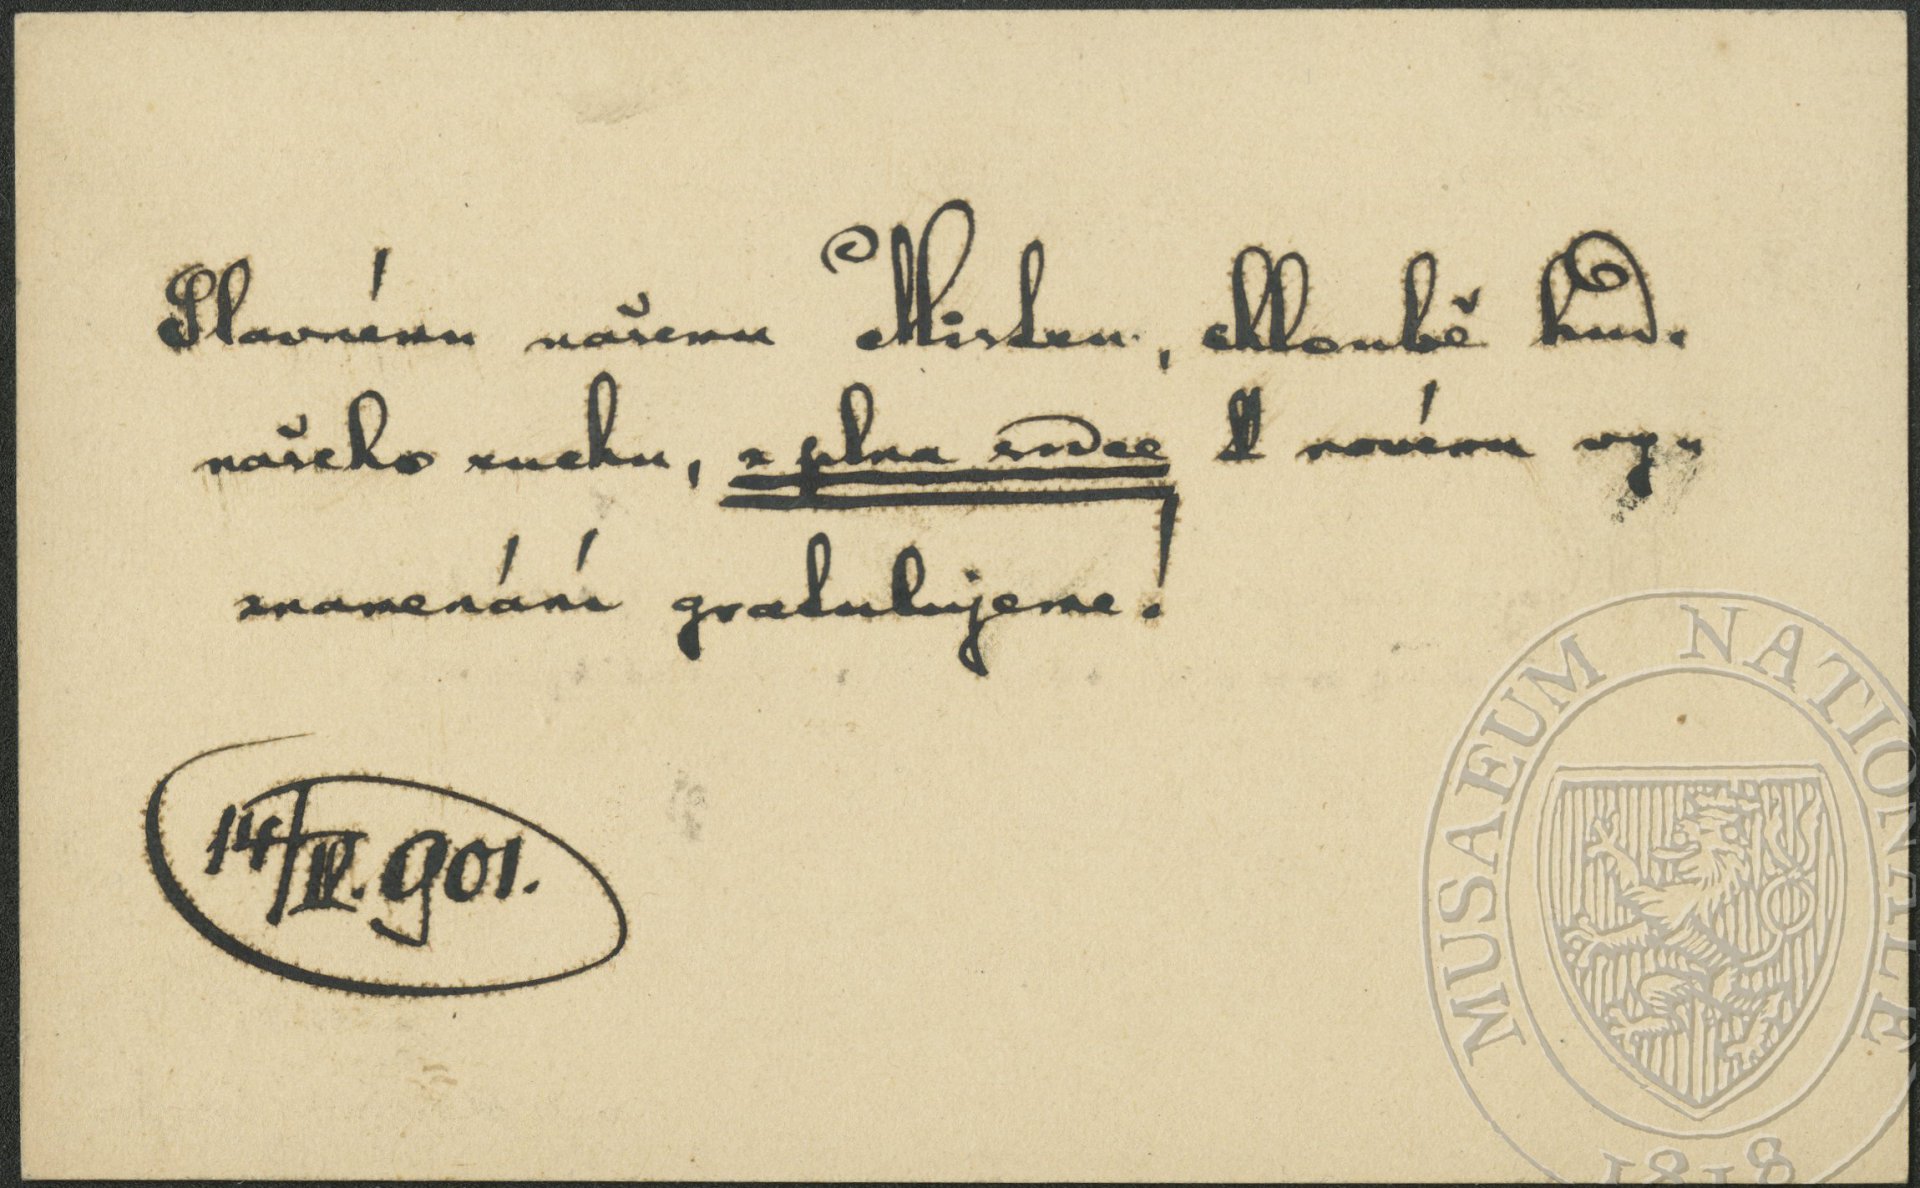 Slavnému našemu Mistru, chloubě hud.
našeho ruchu, z plna srdce k novému vy-
znamenání gratulujeme!
14/IV. 901.
MUSAEUM NATIONALE
1818